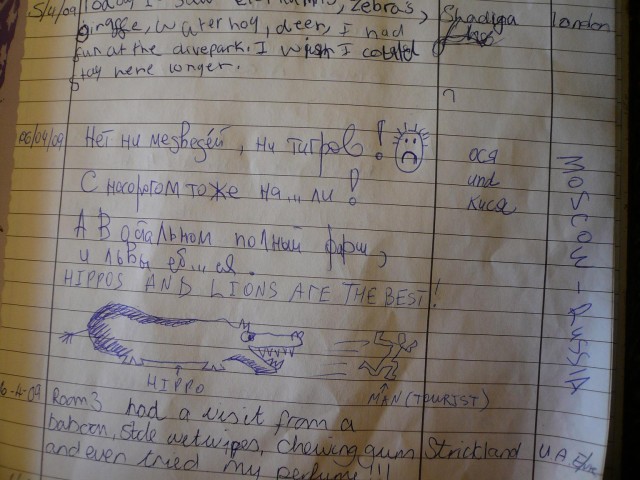 5/4/09 Today I saw elephants, Zebras, Shadiya London
giraffe, Water hog, deer, I had
fun at the divepark. I wish I could
stay here longer.
06/04/09 Нет ни медведей, ни тигров! ося MOSCOW - RUSSIA
С носорогом тоже на...ли! und
А В остальном полный фарш, киса
и львы еб...ся.
HIPPOS AND LIONS ARE THE BEST!
HIPPO
MAN (TOURIST)
6-4-09 Room 3 had a visit from a
baboon, stole wetwipes, chewing gum Strickland U.A.E
and even tried my perfume!!!